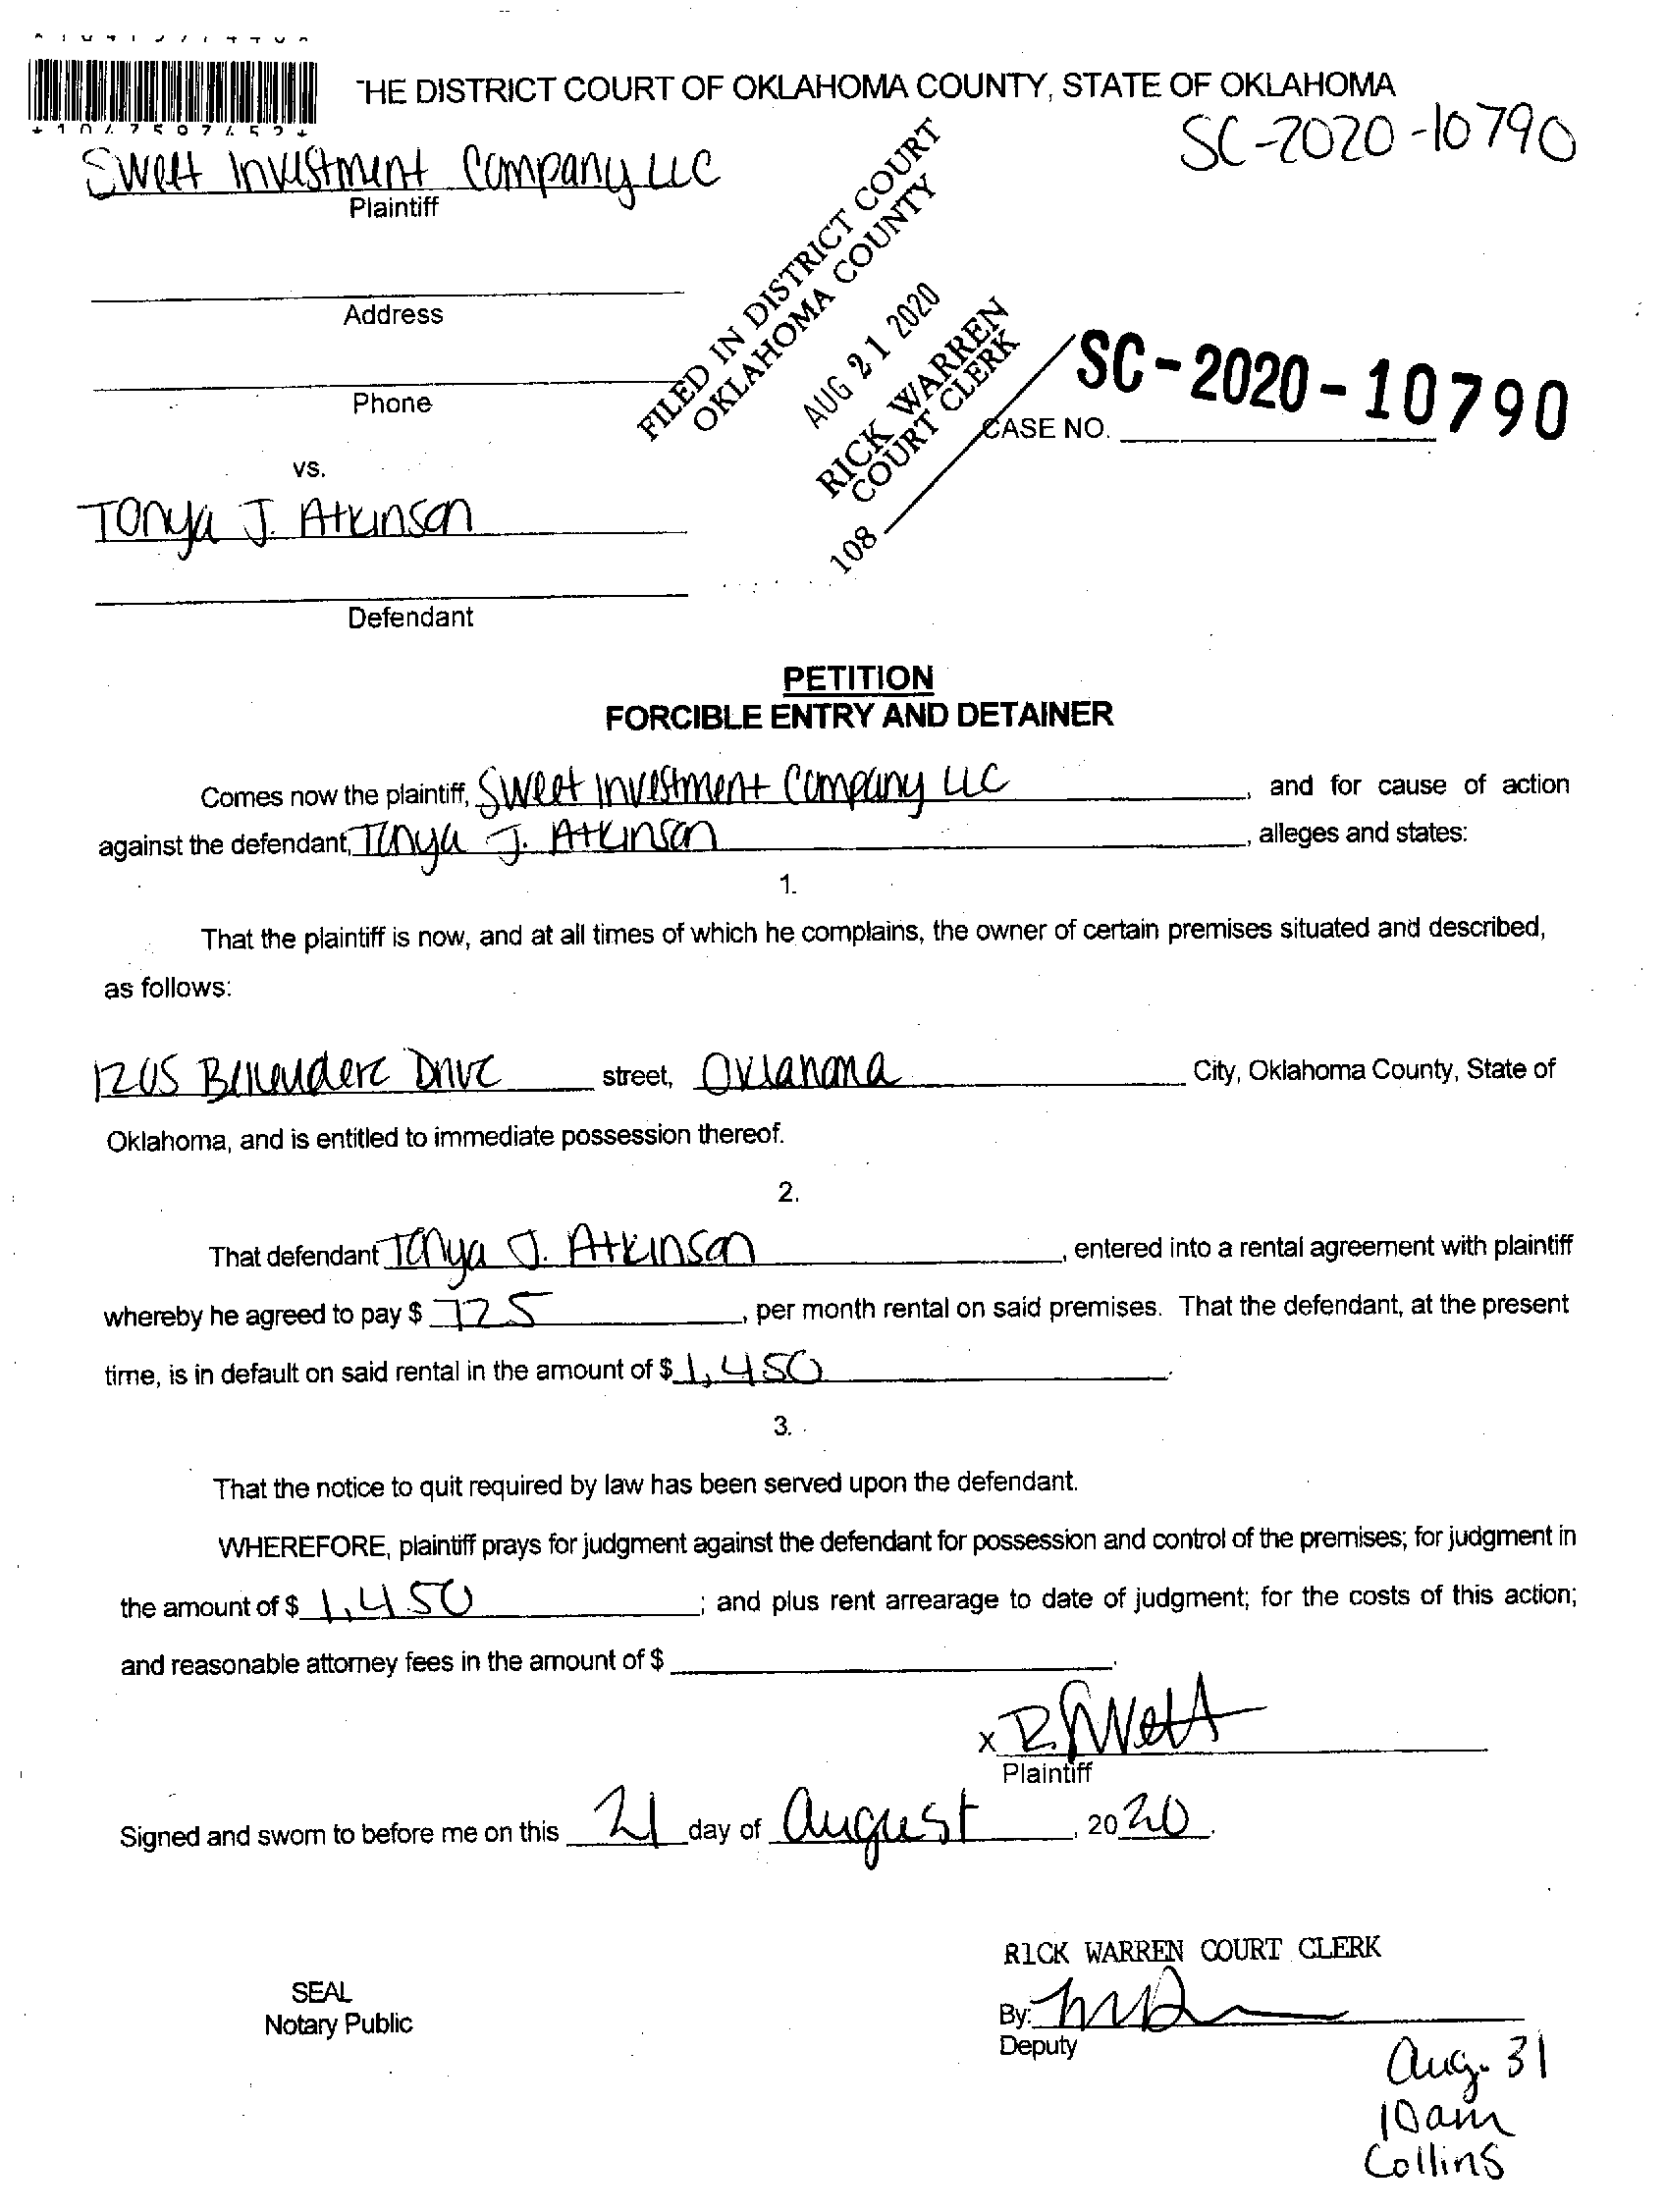 THE DISTRICT COURT OF OKLAHOMA COUNTY, STATE OF OKLAHOMA
SC-2020-10790
Sweet Investment Company LLC
Plaintiff
Address
Phone
vs.
Tonya J. Atkinson
Defendant
FILED IN DISTRICT COURT
OKLAHOMA COUNTY
AUG 21 2020
RICK WARREN
COURT CLERK
108
SC-2020-10790
CASE NO.
PETITION
FORCIBLE ENTRY AND DETAINER
Comes now the plaintiff, Sweet Investment Company LLC, and for cause of action
against the defendant, Tonya J. Atkinson, alleges and states:
1.
That the plaintiff is now, and at all times of which he complains, the owner of certain premises situated and described,
as follows:
1205 Drive street, Oklahoma City, Oklahoma County, State of
Oklahoma, and is entitled to immediate possession thereof.
2.
That defendant Tonya J. Atkinson, entered into a rental agreement with plaintiff
whereby he agreed to pay $ 725, per month rental on said premises. That the defendant, at the present
time, is in default on said rental in the amount of $ 1,450.
3.
That the notice to quit required by law has been served upon the defendant.
WHEREFORE, plaintiff prays for judgment against the defendant for possession and control of the premises; for judgment in
the amount of $ 1,450; and plus rent arrearage to date of judgment; for the costs of this action;
and reasonable attorney fees in the amount of $ .
x R Sweet
Plaintiff
Signed and sworn to before me on this 21 day of August, 2020.
RICK WARREN COURT CLERK
SEAL
Notary Public
By:
Deputy
Aug. 31
10am
Collins